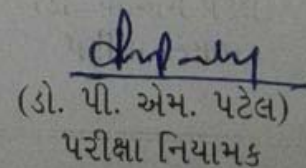 (ડો. પી. એમ. પટેલ)
પરીક્ષા નિયામક